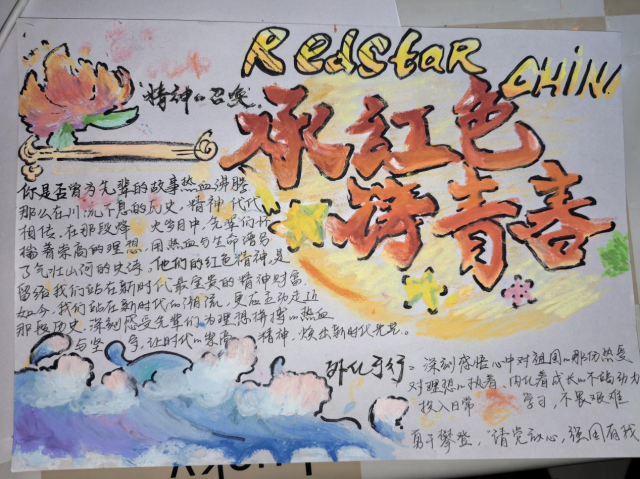 Redstar
CHIN
"精神"召唤。
承红色
铸青春
你是否曾为先辈的故事热血沸腾
那么在川流不息的历史,精神代代
相传,在那段烽火岁月中,先辈们怀
揣着崇高的理想,用热血与生命谱写
了气壮山河的史诗,他们的红色精神,是
留给我们站在新时代最宝贵的精神财富,
如今,我们站在新时代的潮流,更应主动走近
那段历史,深刻感受先辈们为理想拼搏的热血
与坚 ,让时代 精神,焕出新时代光晃。
外化于行:深刻感悟心中对祖国的那份热爱
对理想的执着,内化着成长的不竭动力
投入日常 学习,不畏艰难
勇于攀登,"请党放心,强国有我